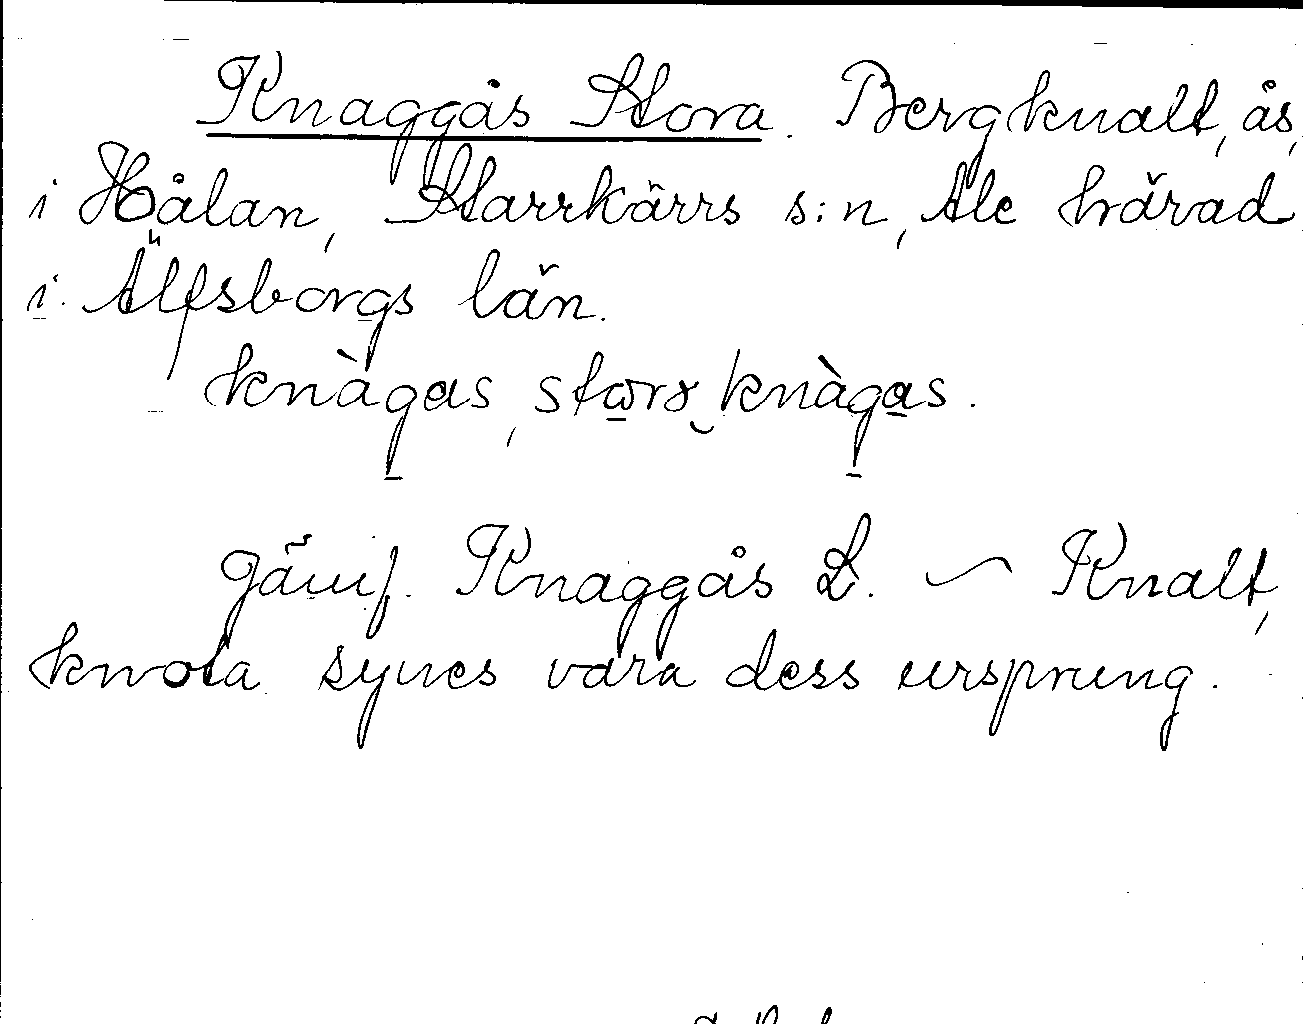 Knaggås Stora. Bergknalt, ås,
i Hålan, Starrkärrs s:n, Ale härad
i Älfsborgs län.
knàgas, stωrɤ‿knàgas.
Jämf. Knaggås L. ~ Knalt,
knota synes vara dess ursprung.